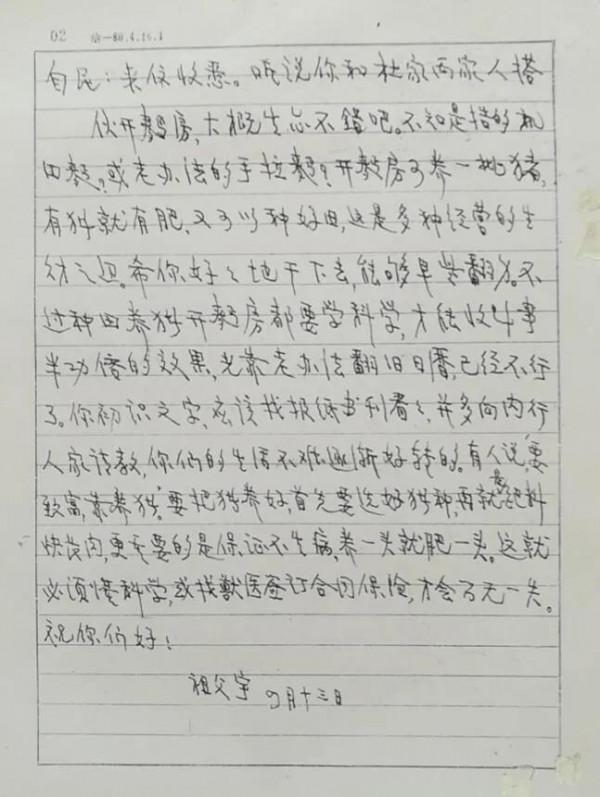 02
自民：来信收悉。听说你和杜家两家人搭
伙开麪房，大概生意不错吧。不知是搭的机
器麪？或老办法的手拉麪？开麪房可养一些猪，
有猪就有肥，又可以种好田，这是多种经营的生
财之道。希你好好地干下去，能够早些翻身。不
过种田养猪开麪房都要学科学，才能收到事
半功倍的效果，光靠老办法翻旧日历，已经不行
了。你初识文字，应该找报纸书刊看看，并多向内行
人家请教，你们的生活不难逐渐好转的。有人说“要
致富，靠养猪。”要把猪养好，首先要选好猪种，再就是配料
快长肉，更重要的是保证不生病，养一头就肥一头。这就
必须懂科学，或找兽医签订合同保险，才会万无一失。
祝你们好！
祖父字
四月十三日